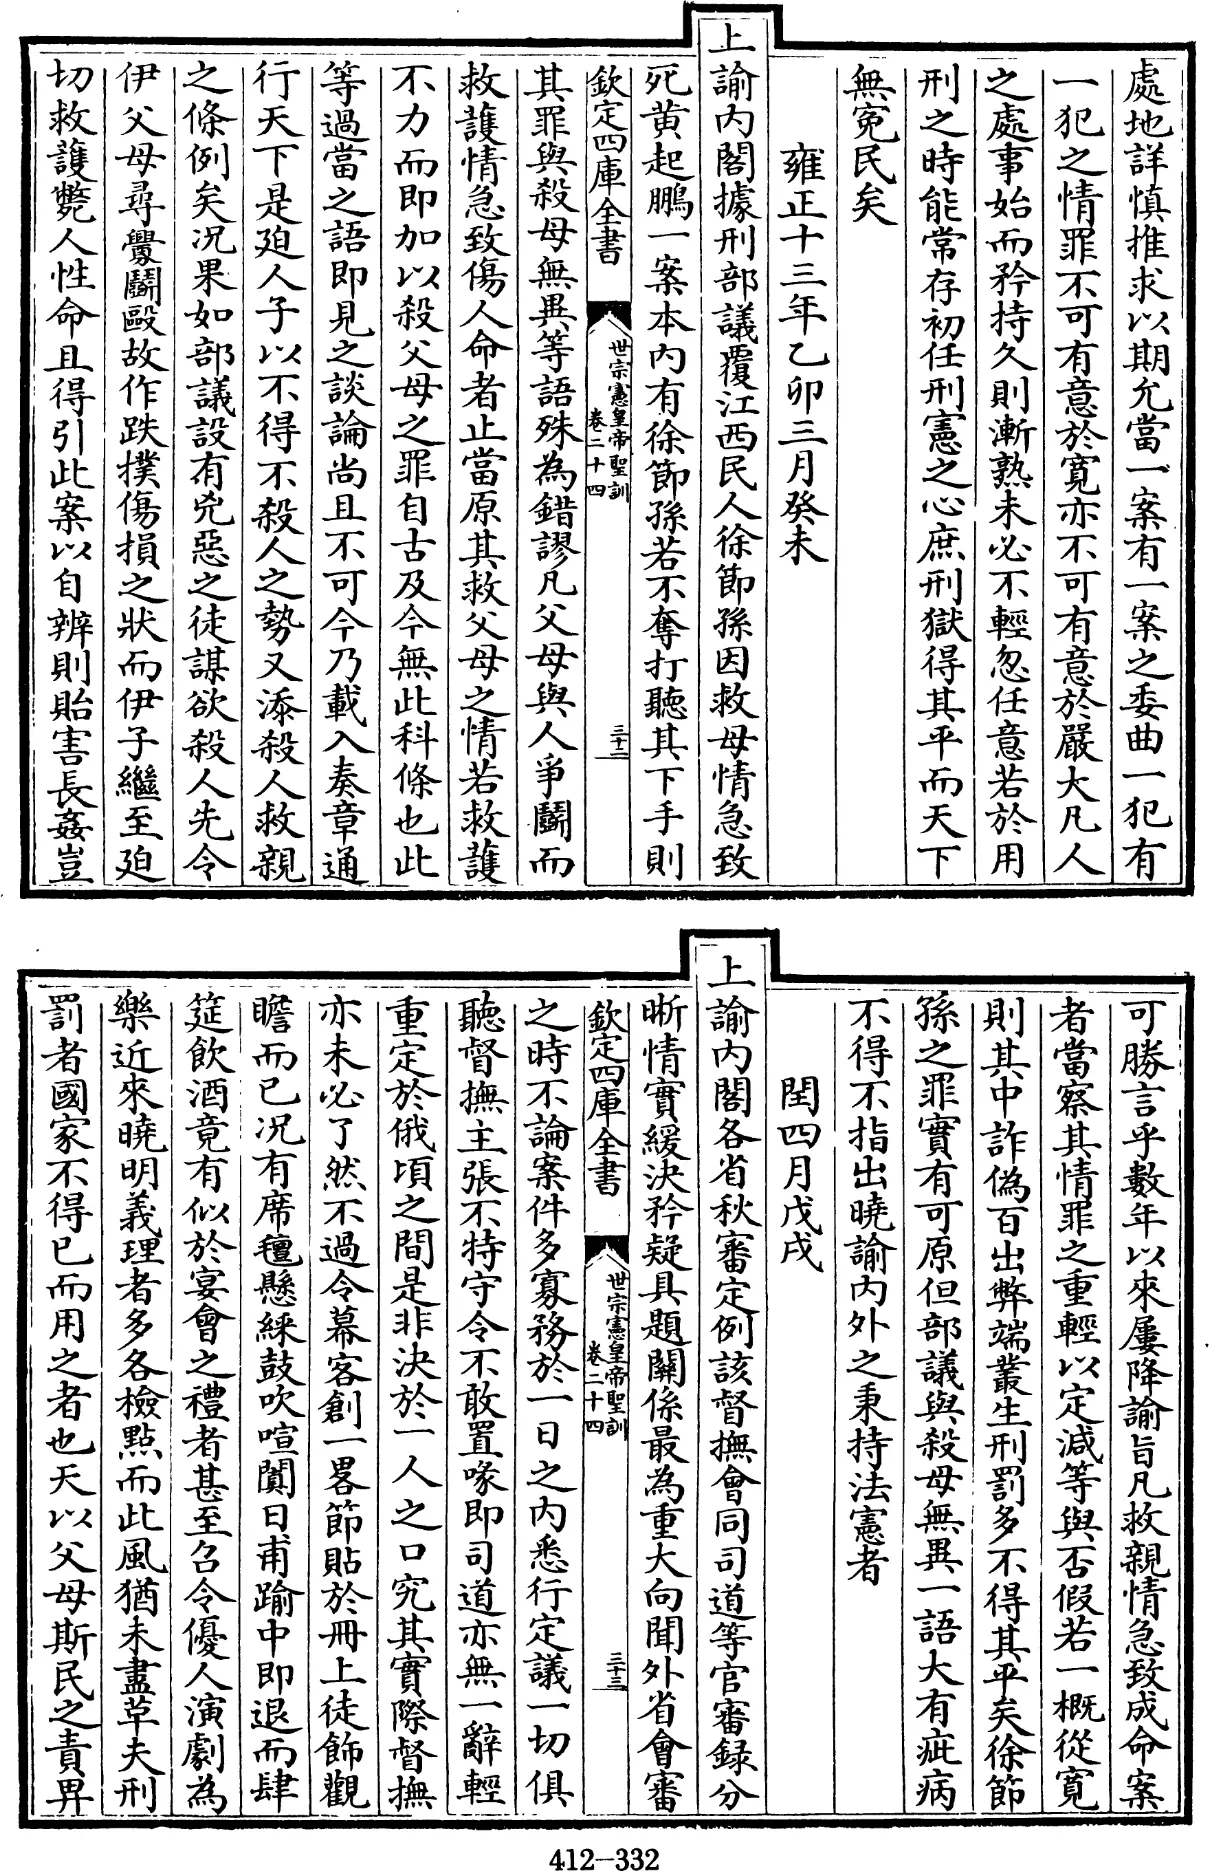 處地詳慎推求以期允當一案有一案之委曲一犯有
一犯之情罪不可有意於寬亦不可有意於嚴大凡人
之處事始而矜持久則漸熟未必不輕忽任意若於用
刑之時能常存初任刑憲之心庶刑獄得其平而天下
無冤民矣
雍正十三年乙卯三月癸未
上諭內閣據刑部議覆江西民人徐節孫因救母情急致
死黃起鵬一案本內有徐節孫若不奪打聽其下手則
欽定四庫全書
世宗憲皇帝聖訓
卷二十四
三十二
其罪與殺母無異等語殊為錯謬凡父母與人爭鬭而
救護情急致傷人命者止當原其救父母之情若救護
不力而即加以殺父母之罪自古及今無此科條也此
等過當之語即見之談論尚且不可今乃載入奏章通
行天下是廹人子以不得不殺人之勢又添殺人救親
之條例矣况果如部議設有兇惡之徒謀欲殺人先令
伊父母尋釁鬭毆故作跌撲傷損之狀而伊子繼至廹
切救護斃人性命且得引此案以自辨則貽害長姦豈
可勝言乎數年以來屢降諭旨凡救親情急致成命案
者當察其情罪之重輕以定減等與否假若一概從寬
則其中詐偽百出弊端叢生刑罰多不得其平矣徐節
孫之罪實有可原但部議與殺母無異一語大有疵病
不得不指出曉諭內外之秉持法憲者
閏四月戊戌
上諭內閣各省秋審定例該督撫會同司道等官審錄分
晰情實緩決矜疑具題關係最為重大向聞外省會審
欽定四庫全書
世宗憲皇帝聖訓
卷二十四
三十三
之時不論案件多寡務於一日之內悉行定議一切俱
聽督撫主張不特守令不敢置喙即司道亦無一辭輕
重定於俄頃之間是非決於一人之口究其實際督撫
亦未必了然不過令幕客創一畧節貼於冊上徒飾觀
瞻而已况有席氊懸綵鼓吹喧闐日甫踰中即退而肆
筵飲酒竟有似於宴會之禮者甚至召令優人演劇為
樂近來曉明義理者多各檢點而此風猶未盡革夫刑
罰者國家不得已而用之者也天以父母斯民之責畀
412-332